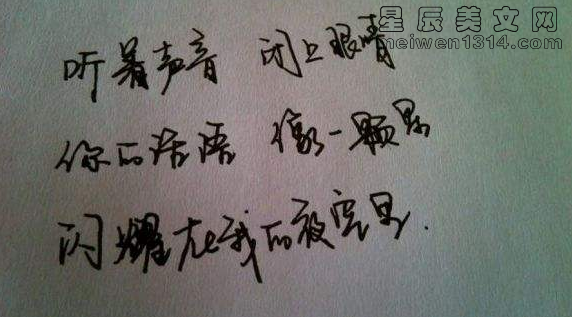 星辰美文网
meiwen1314.com
听着声音 闭上眼睛
你的话语 像一颗星
闪耀在我的夜空里.